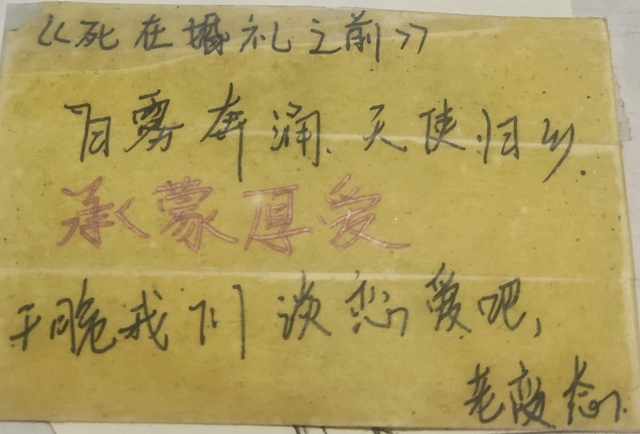 《死在婚礼之前》
白雾奔涧，天使归乡.
承蒙厚爱
干脆我们谈恋爱吧，
老变态